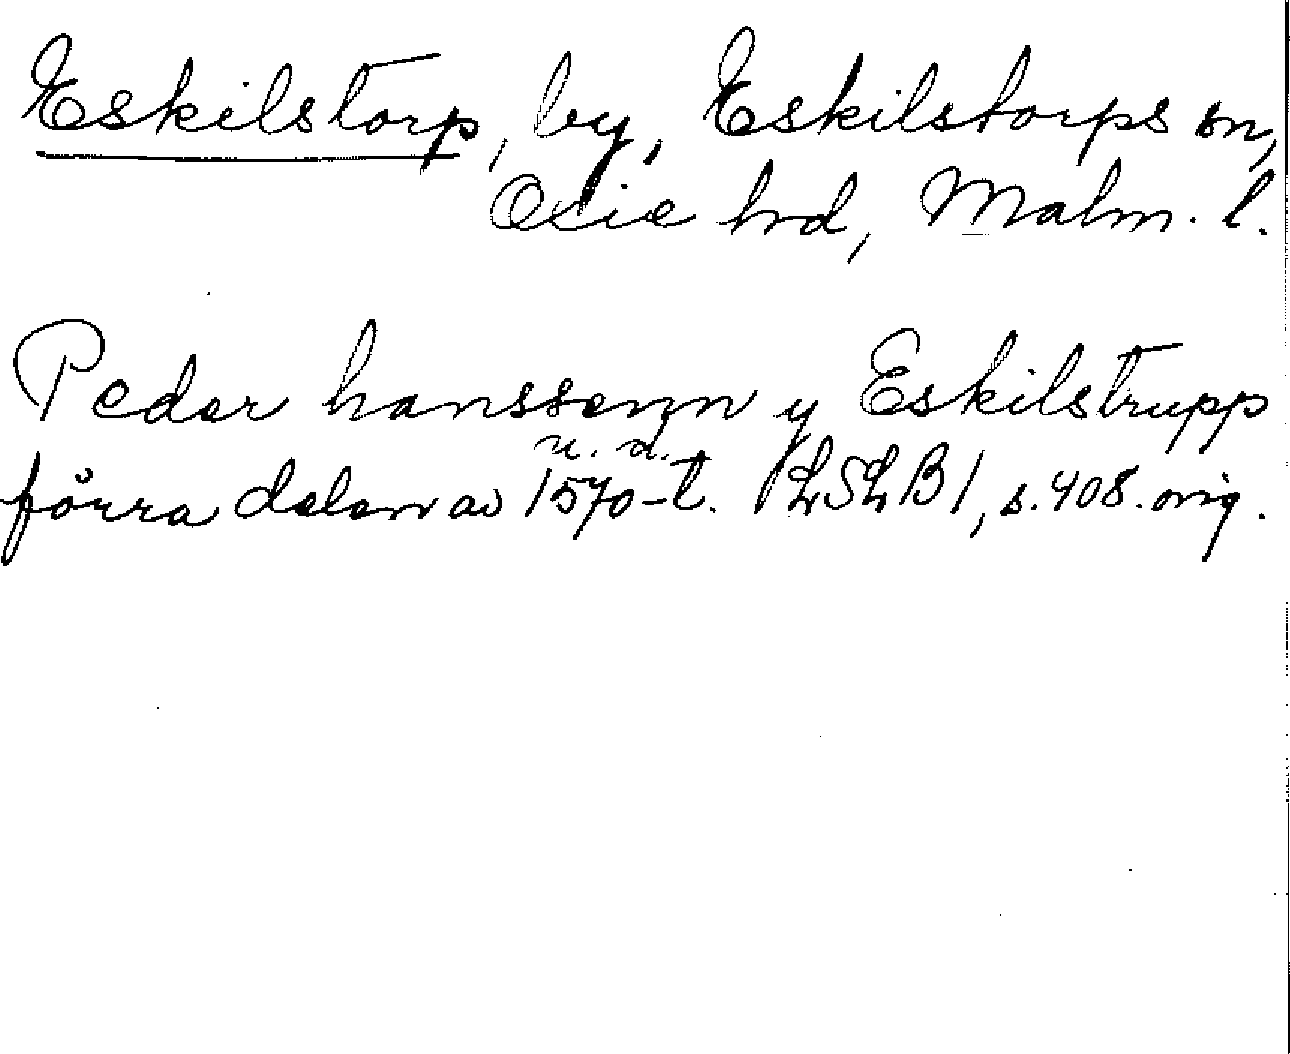 Eskilstorp, by, Eskilstorps sn,
Oxie hrd, Malm. l.
Peder hanssenn y Eskilstrupp
u. d.
förra delen av 1570-t. LSLB 1, s. 408. orig.